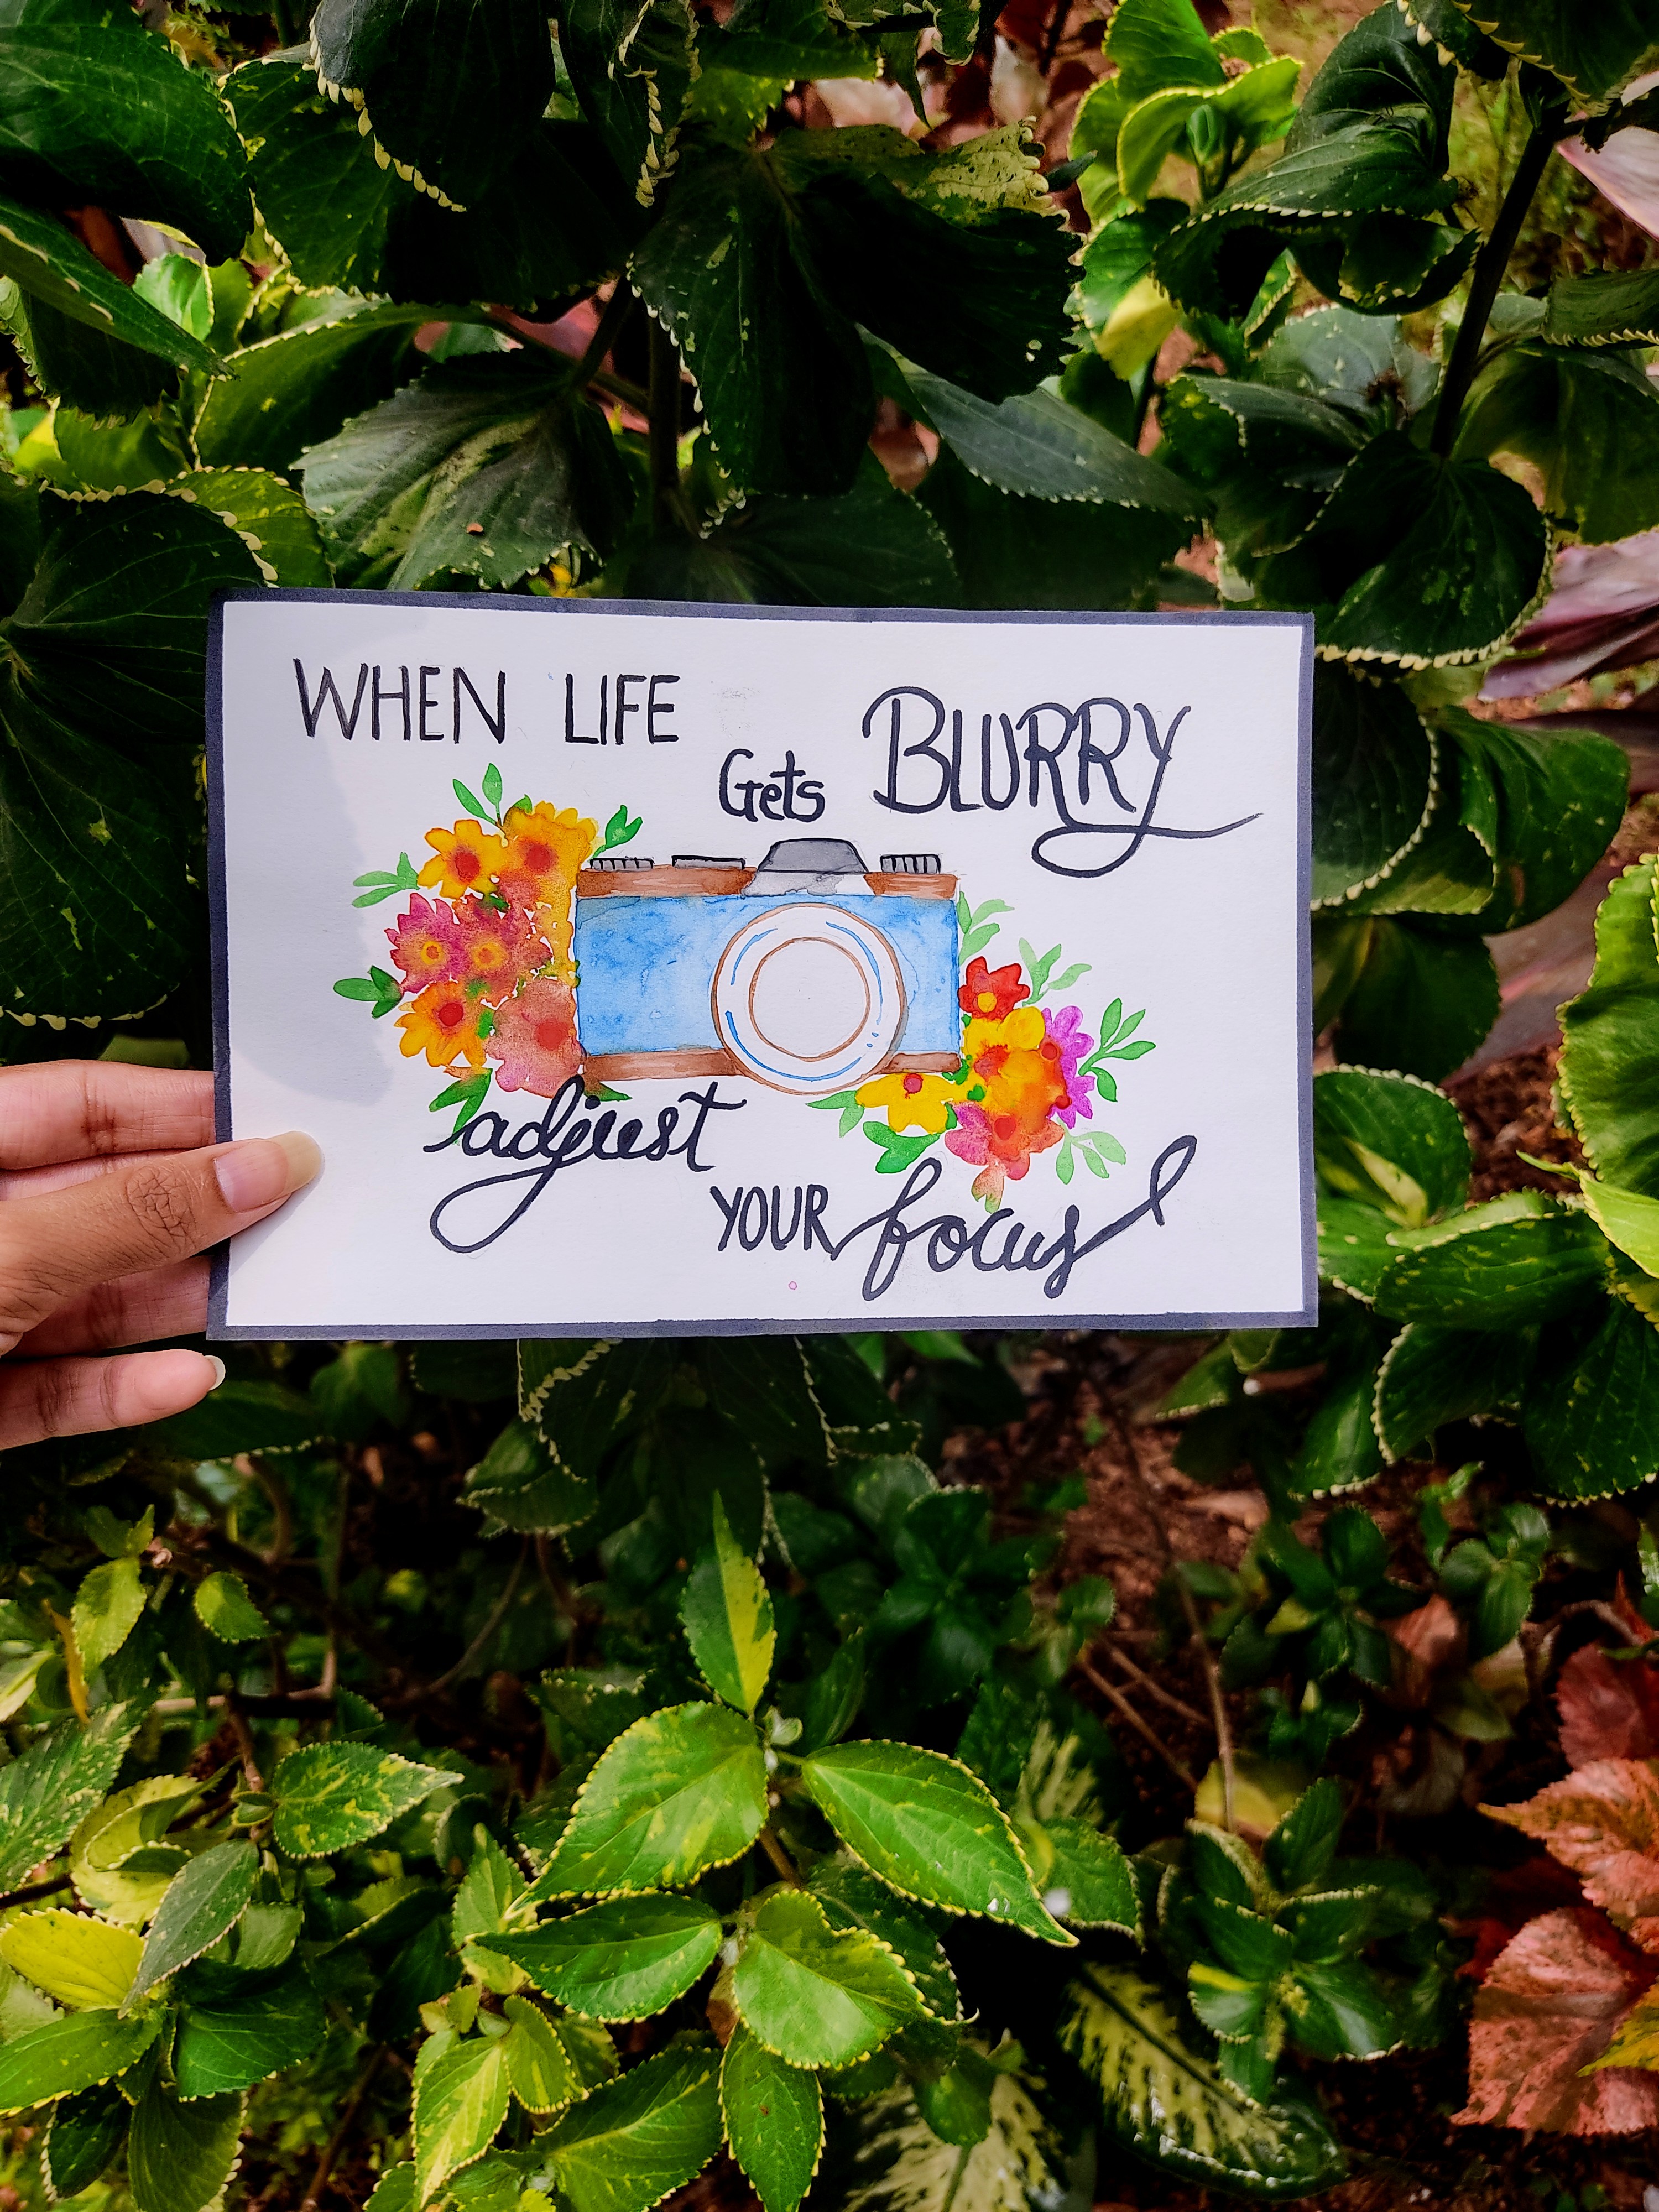 WHEN LIFE
Gets BLURRY
adjust
YOUR focus